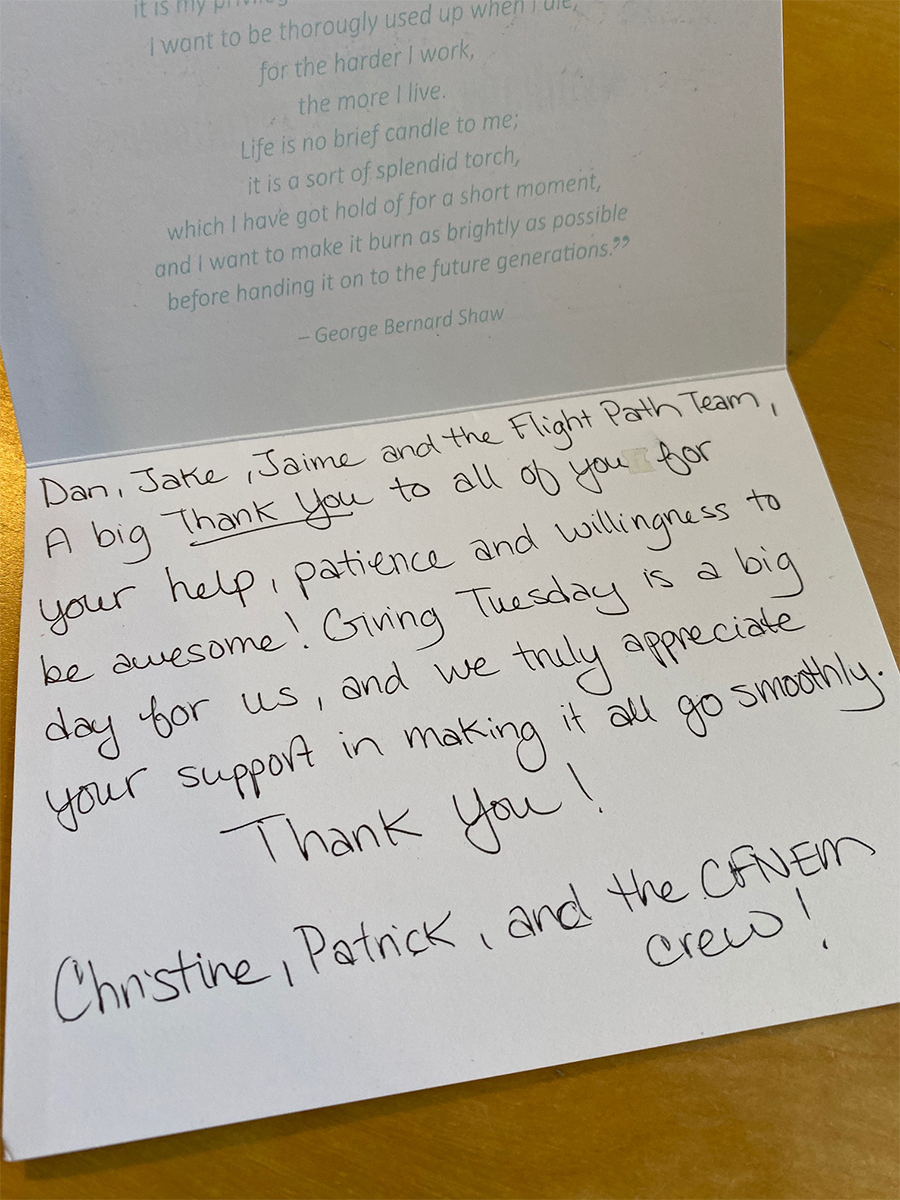 it is my
I want to be thorougly used up when I die,
for the harder I work,
the more I live.
Life is no brief candle to me;
it is a sort of splendid torch,
which I have got hold of for a short moment,
and I want to make it burn as brightly as possible
before handing it on to the future generations.”
– George Bernard Shaw
Dan, Jake, Jaime and the Flight Path Team,
A big Thank You to all of you for
your help, patience and willingness to
be awesome! Giving Tuesday is a big
day for us, and we truly appreciate
your support in making it all go smoothly.
Thank You!
Christine, Patrick, and the CFNEM
crew!